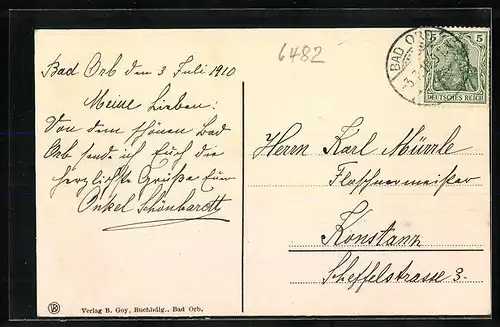 6482
Bad Orb den 3 Juli 1910
Meine Lieben!
Von dem schönen Bad
Orb sende ich Euch die
herzlichste Grüße Euer
Onkel Schönhardt
Herrn Karl Mürrle
Flaschnermeister
Konstanz
Scheffelstrasse 3.
BAD ORB
5 5
DEUTSCHES REICH
Verlag B. Goy, Buchhdlg., Bad Orb.